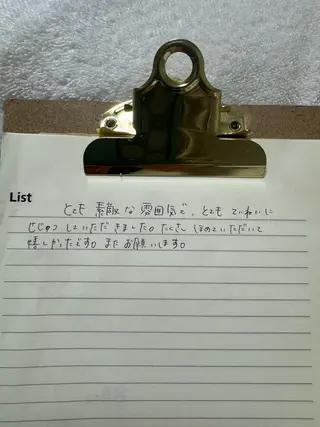 List
とても 素敵な 雰囲気で、とても ていねいに
せじゅつ していただきました。たくさん ほめていただいて
嬉しかったです。また お願いします。